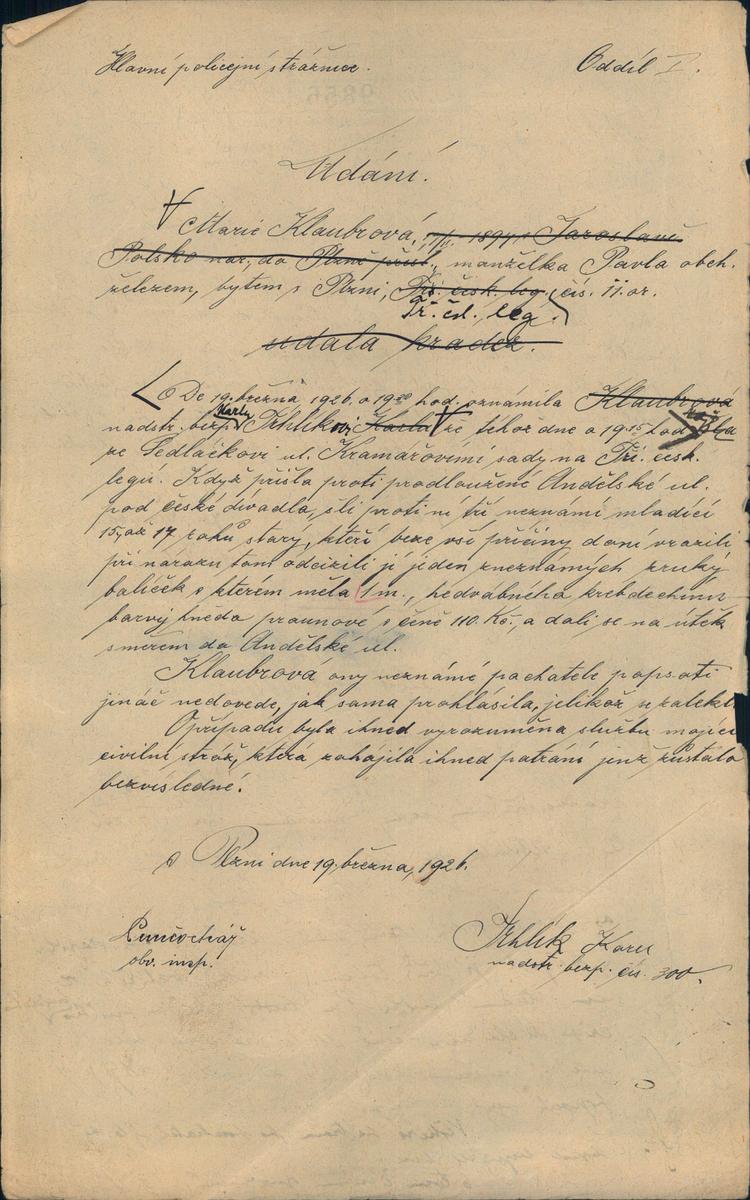 Hlavní policejní strážnice.
Oddíl I.
Udání.
Marie Klaubrová, 1894 Jaroslavě
Polsko nar., do Plzně přísl., manželka Pavla obch.
železem, bytem v Plzni, Tř. česk. leg. čís. 11. or.
Tř. čsl. leg.
udala krádež.
Dne 19. března 1926 o 19 hod. oznámila Klaubrová
nadstr. bezp. Karlu Trhlíkovi Karlu že téhož dne o 19.15 hod. šla
ze Sedláčkovi ul. Kramářovými sady na Tří. česk.
legií. Když přišla proti prodloužené Andělské ul.
pod české divadla, šli proti ní tří neznámí mladíci
15, až 17 roků stary, kteří beze vší příčiny do ní vrazili
při nárazu tom odcizili jí jeden z neznámých z ruky
balíček v kterém měla 1 m., hedvábného krebdechinu
barvy hněda praunové v ceně 110. Kč., a dali se na útěk
směrem do Andělské ul.
Klaubrová ony neznámé pachatele popsati
jináč nedovede, jak sama prohlásila, jelikož se zalekla.
O případu byla ihned vyrozuměna službu mající
civilní stráž, která zahájila ihned pátrání jenž zůstalo
bezvýsledné.
v Plzni dne 19. března, 1926.
Punčochář
obv. insp.
Trhlík Karel
nadstr. bezp. čís. 300.